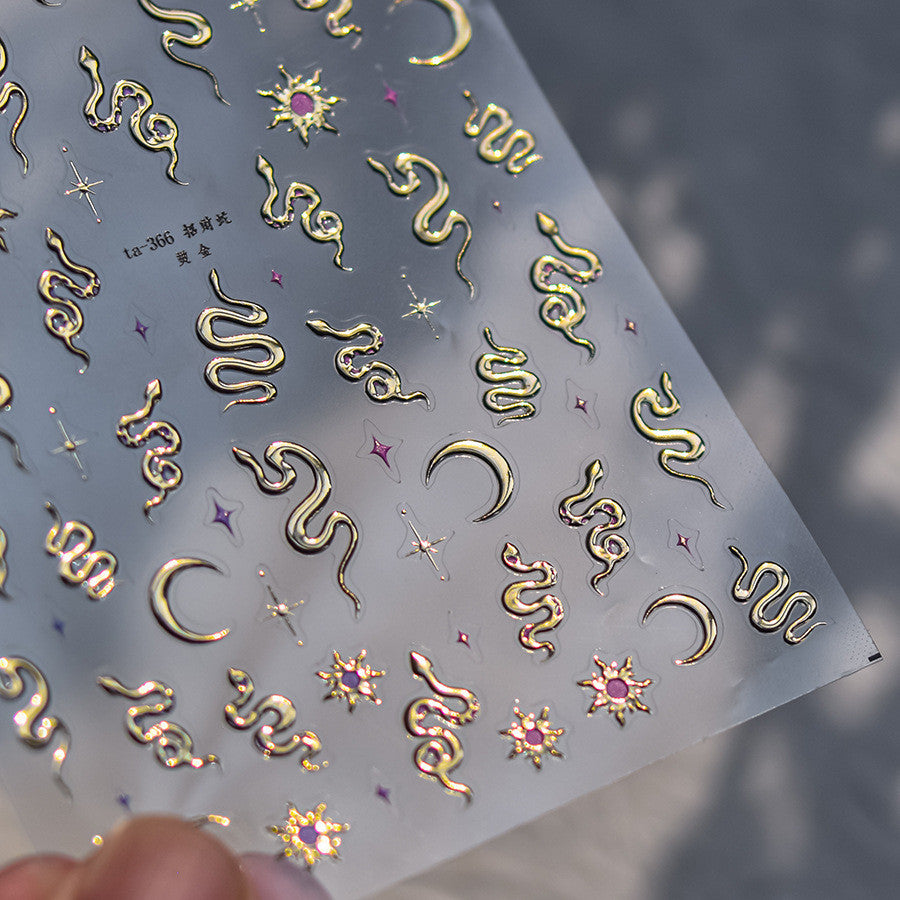 ta-366 招财蛇
黄金